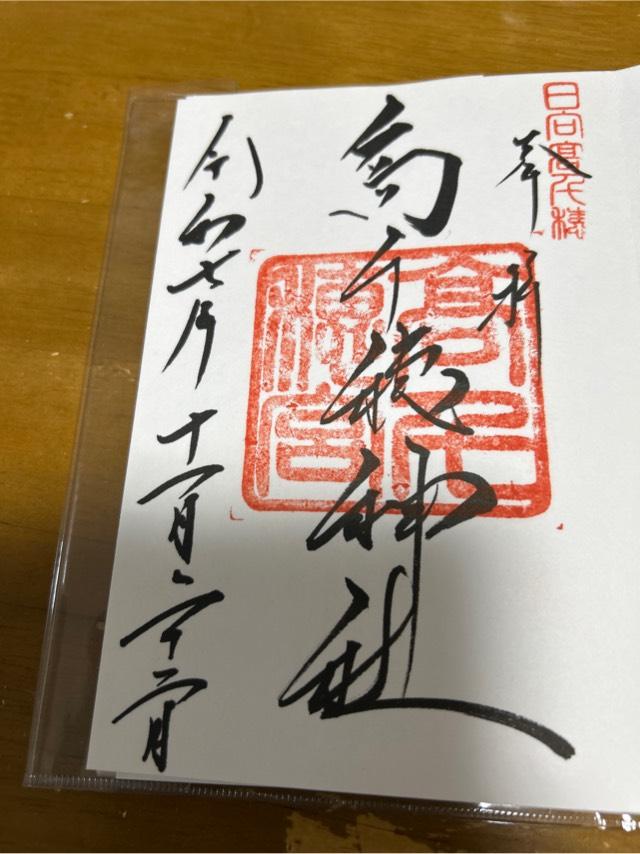 日向高千穂
奉拝
高千穂神社
高千穂宮
令和七年十一月二十二日